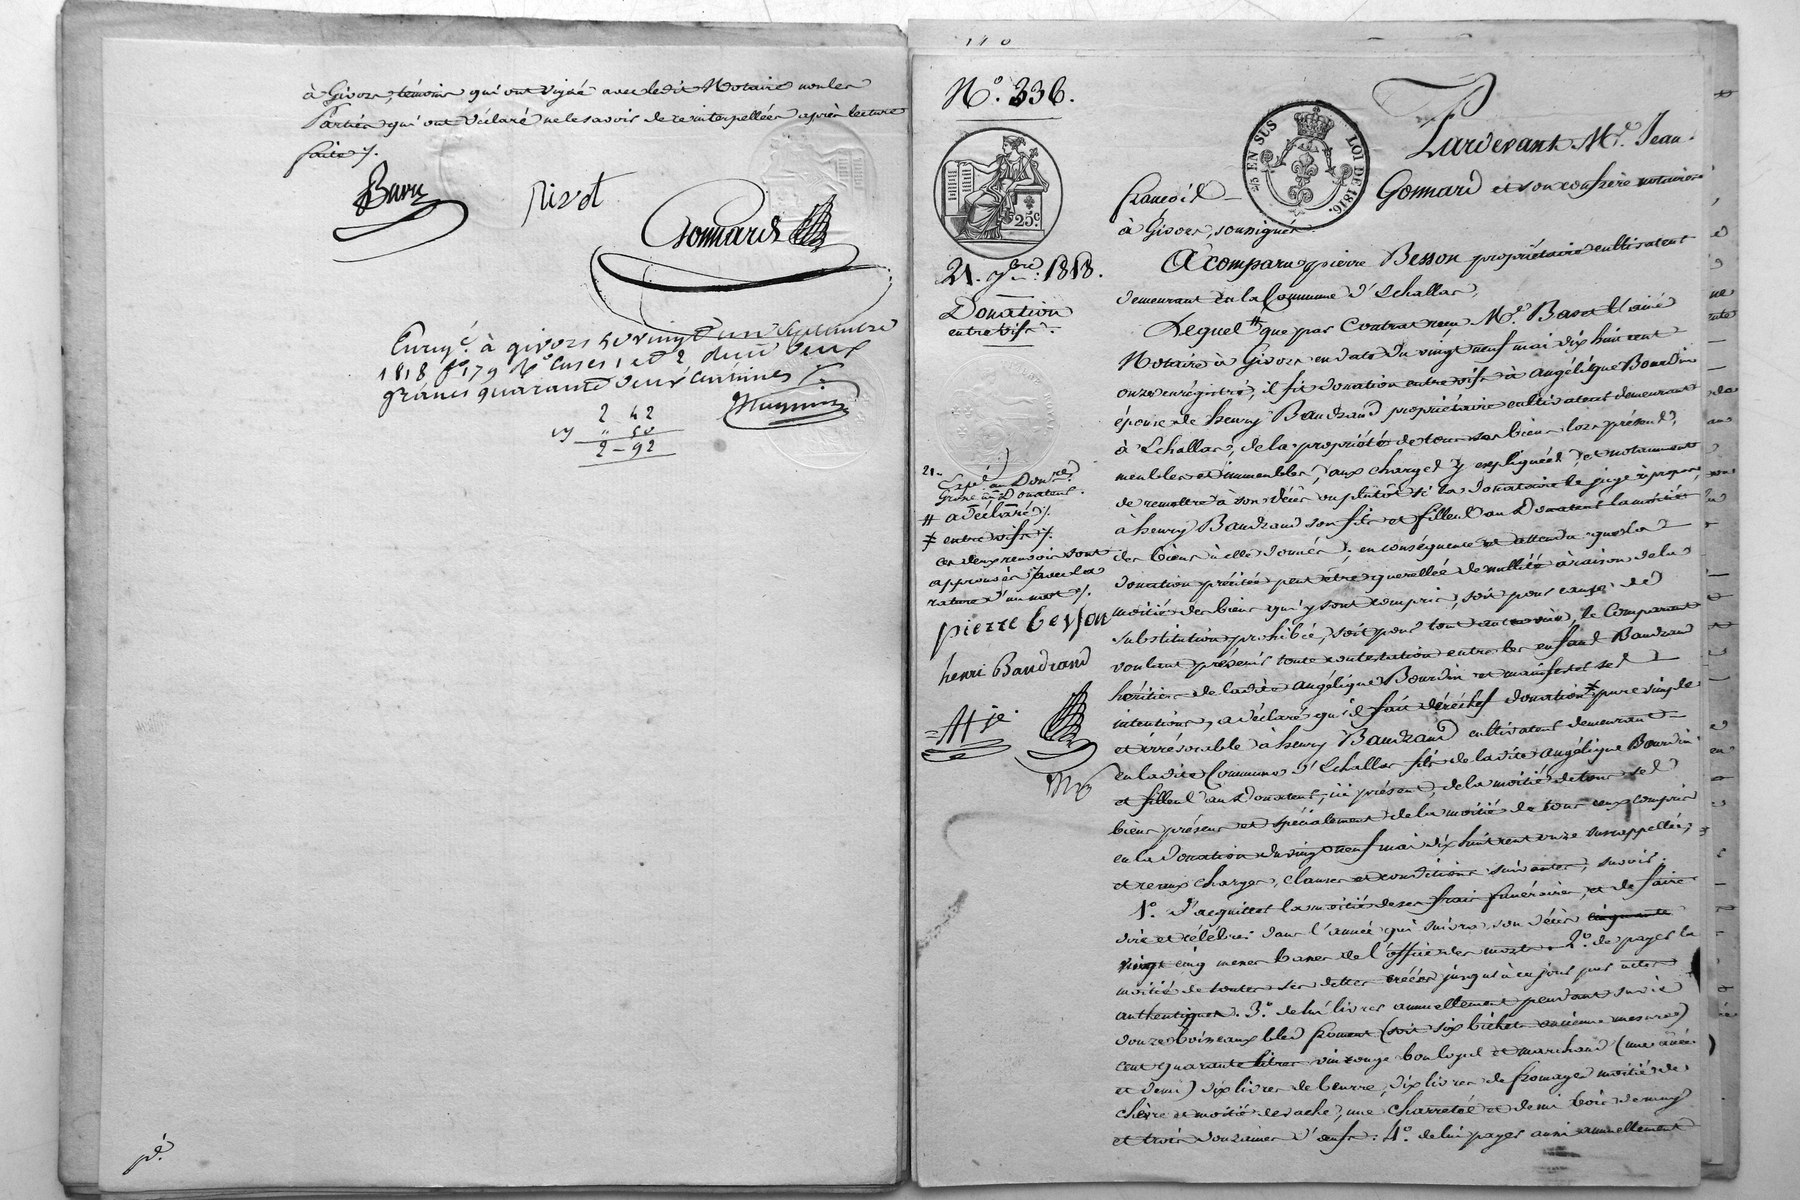 à Givors, témoins qui ont signé avec ledit Notaire non les
Parties qui ont déclaré ne le savoir de ce interpellées après lecture
faite ./.
Rivot
Gonnard
Enreg.é à givors le vingt un Septembre
1818 f.o 179 v.o Cases 1 et 2 deux
francs quarante deux centimes
2 42
" 50
2 - 92
p.é
N.o 336.
25 EN SUS
LOI DE 1816.
25 c
21. 7bre 1818.
Donation
entrevifs.
21
# a déclaré ./.
entrevifs ./.
ces deux renvois sont
approuvés avec la
rature d'un mot ./.
pierre besson
henri Baudrand
Pardevant M.e Jean
françois Gonnard et son confrère notaires
à Givors, soussignés
A comparu pierre Besson propriétaire cultivateur
demeurant en la Commune d'Echallas,
Lequel # que par Contrat reçu M.e ainé
Notaire à Givors en date du vingt neuf mai dix huit cent
onze enrégistré, il fit donation entrevifs à Angélique Bourdin
épouse de henry Baudrand propriétaire cultivateur demeurant
à Echallas, de la propriété de tous ses biens lors présens,
meubles et immeubles, aux charges y expliquées, et notamment
de remettre à son décès ou plutôt si la donataire le juge à propos,
à henry Baudrand son fils et filleul au Donateur la moitié
des biens à elle donnés; en conséquence et attendu que la
donation précitée peut être querellée de nullité à raison de la
moitié des biens qui y sont compris, soit pour cause de
substitution prohibée, soit pour tout autre vice, le Comparant
voulant prévenir toute contestation entre les enfans Baudrand
héritiers de ladite Angélique Bourdin et manifester ses
intentions, a déclaré qu'il fait derechef donation pure simple
et irrévocable à henry Baudrand cultivateur demeurant
en ladite Commune d'Echallas fils de ladite Angélique Bourdin
et filleul au Donateur, ici présent, de la moitié de tous ses
biens présens et spécialement de la moitié de tous ceux compris
en la Donation du vingt neuf mai dix huit cent onze susrappellée,
et ce aux charges, clauses et conditions suivantes, savoir.
1.o D'acquitter la moitié de ses frais funéraires, et de faire
dire et célébrer dans l'année qui suivra son décès cinquante
vingt cinq messes basses de l'office des morts. 2.o de payer la
moitié de toutes ses dettes créées jusqu'à ce jour par actes
authentiques. 3.o de lui livrer annuellement pendant sa vie
douze boisseaux bled froment (soit six bichets ancienne mesure)
cent quarante litres vin rouge bon loyal et marchand (une ânée
et demi) dix livres de beurre, dix livres de fromages moitié de
chèvre et moitié de vache, une charretée et demi bois de
et trois douzaines d'œufs. 4.o de lui payer aussi annuellement